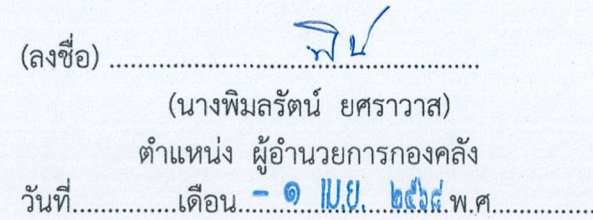 (ลงชื่อ) ........................................................
(นางพิมลรัตน์ ยศราวาส)
ตำแหน่ง ผู้อำนวยการกองคลัง
วันที่...............เดือน - ๑ เม.ย. ๒๕๖๘ พ.ศ...............